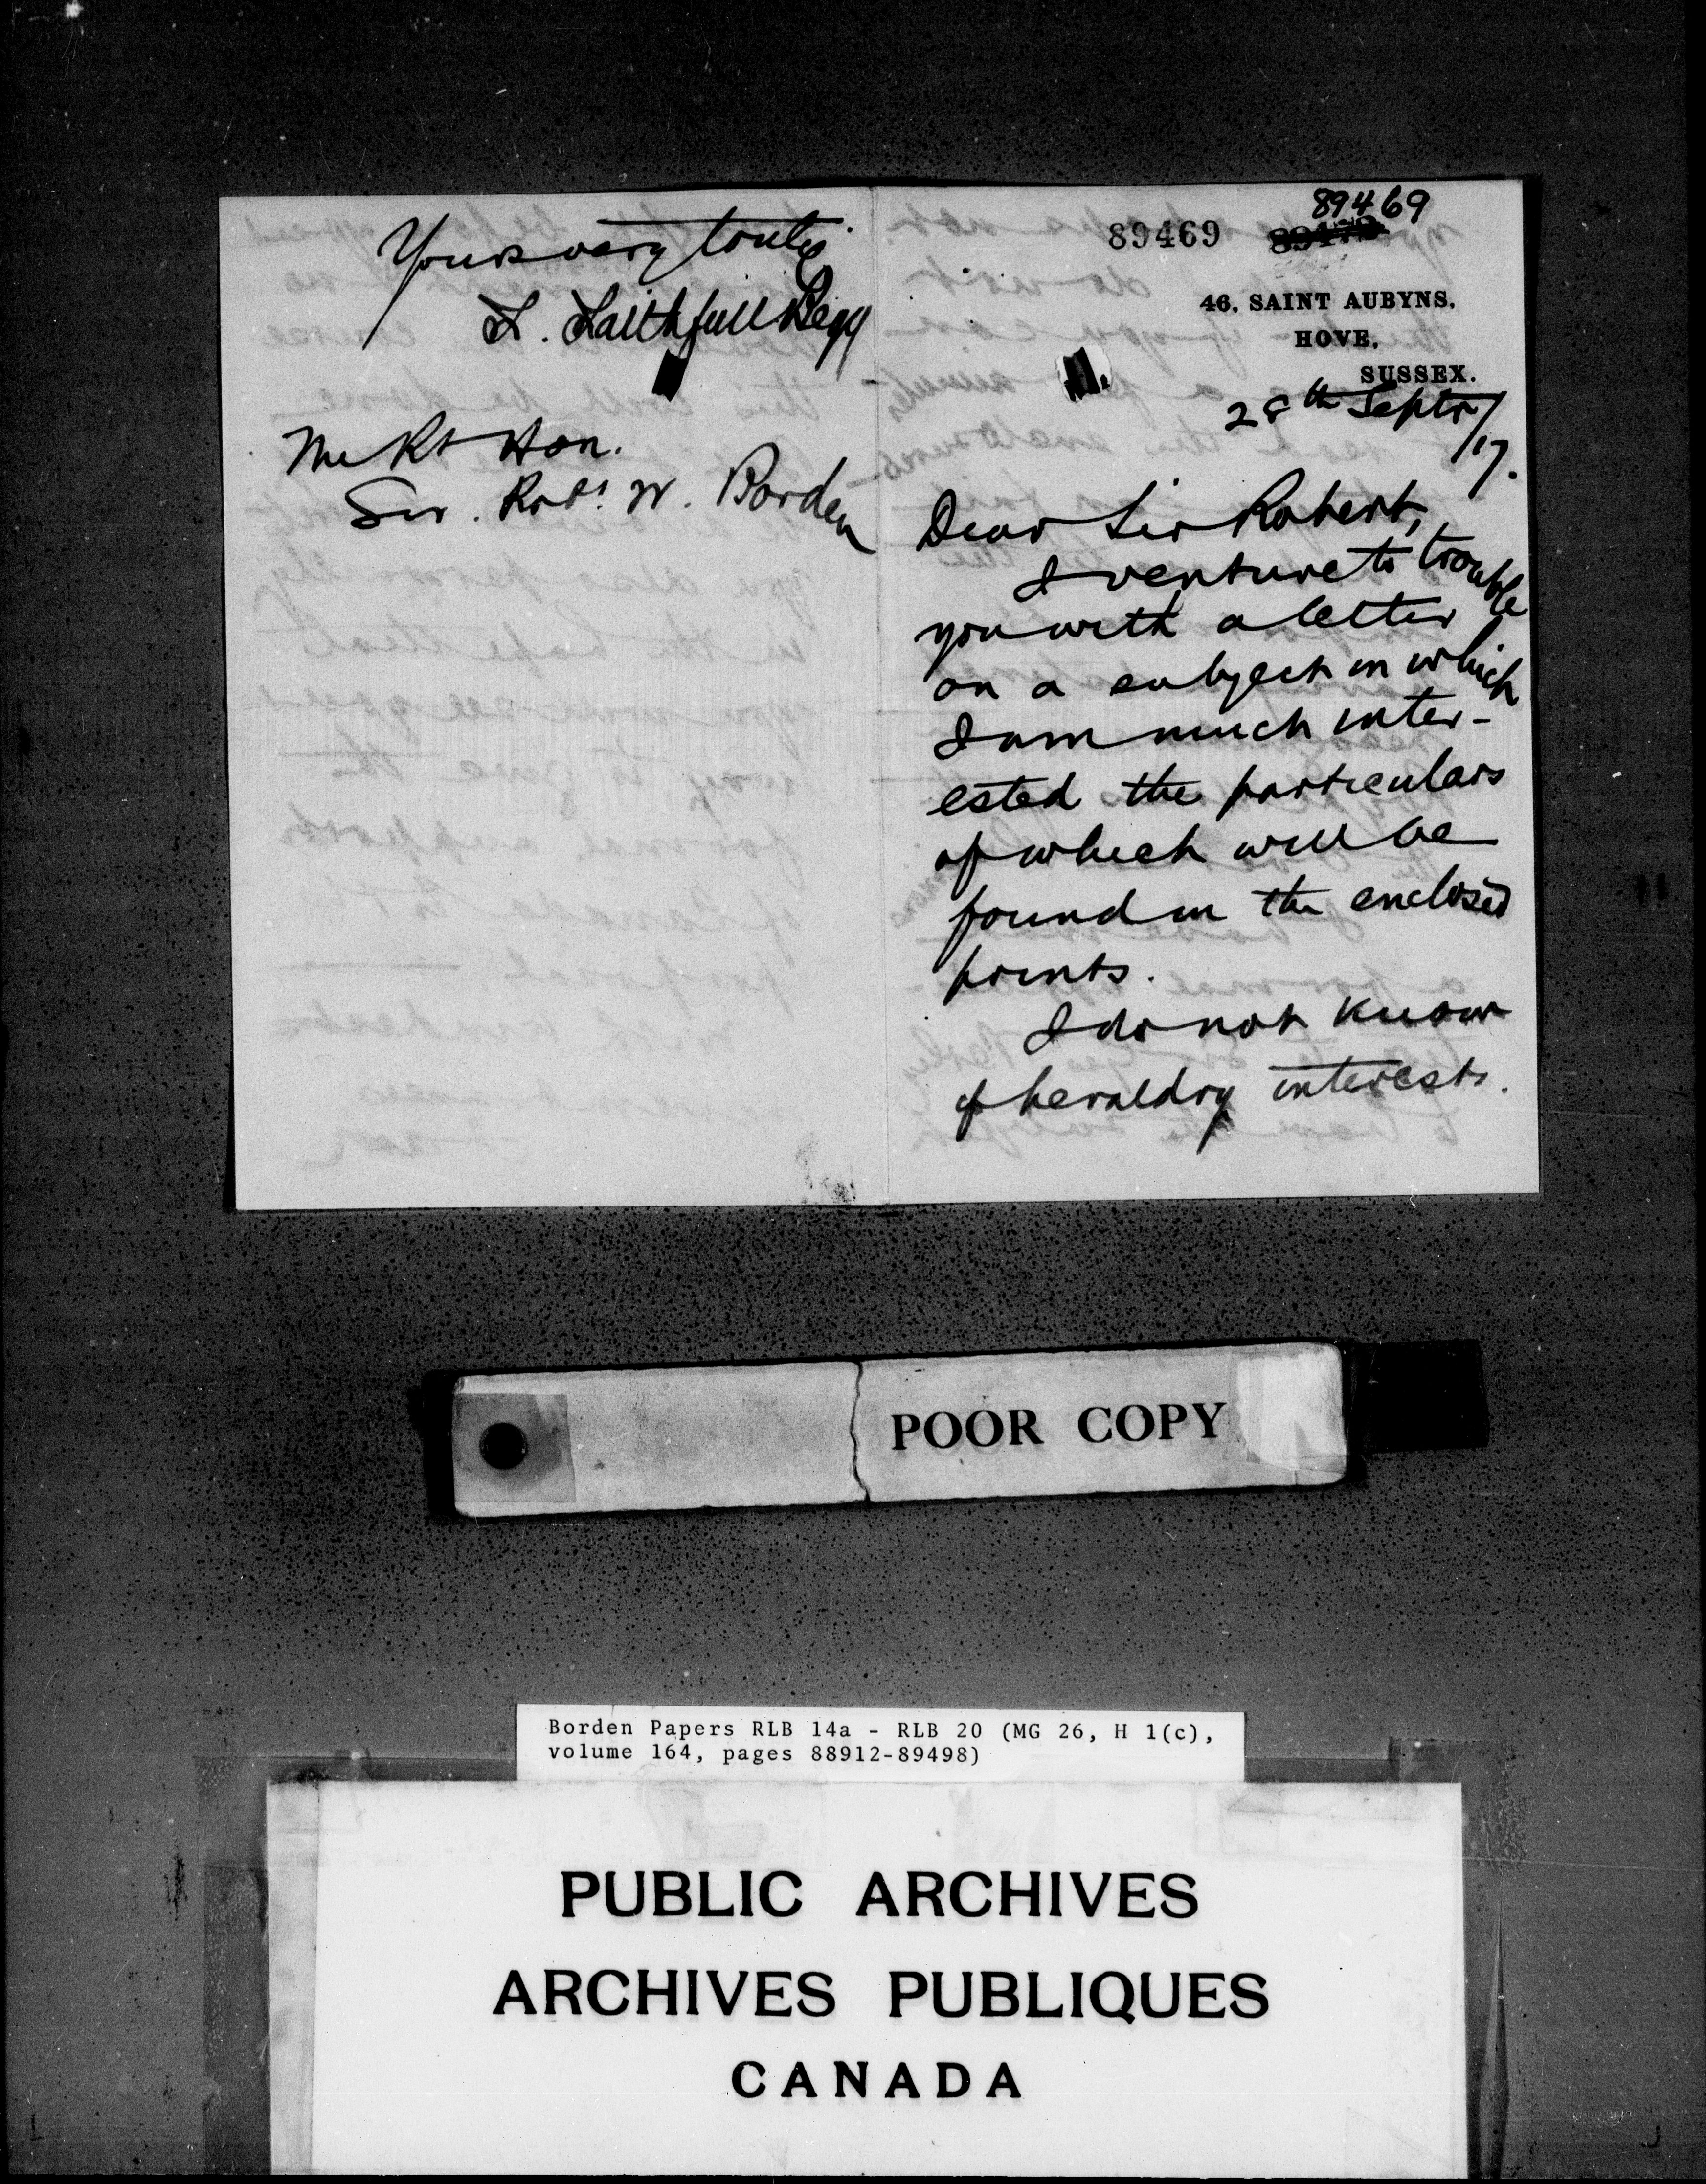 Yours very truly
F. Faithfull Begg
The Rt Hon.
Sir. Robt. W. Borden
89469
89469
46, SAINT AUBYNS,
HOVE,
SUSSEX.
28th Septr/
17.
Dear Sir Robert,
I venture to trouble
you with a letter
on a subject in which
I am much inter-
ested the particulars
of which will be
found in the enclosed
prints.
I do not know
if heraldry interests
POOR COPY
Borden Papers RLB 14a - RLB 20 (MG 26, H 1(c),
volume 164, pages 88912-89498)
PUBLIC ARCHIVES
ARCHIVES PUBLIQUES
CANADA